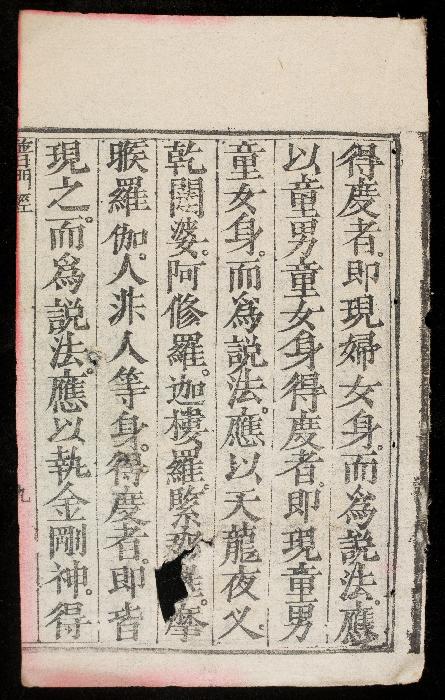 得度者。即現婦女身。而為說法。應
以童男童女身得度者。即現童男
童女身。而為說法。應以天龍夜乂。
乾闥婆。阿修羅。迦樓羅緊羅。摩
睺羅伽。人非人等身。得度者。即皆
現之。而為說法。應以執金剛神。得
普門經
九